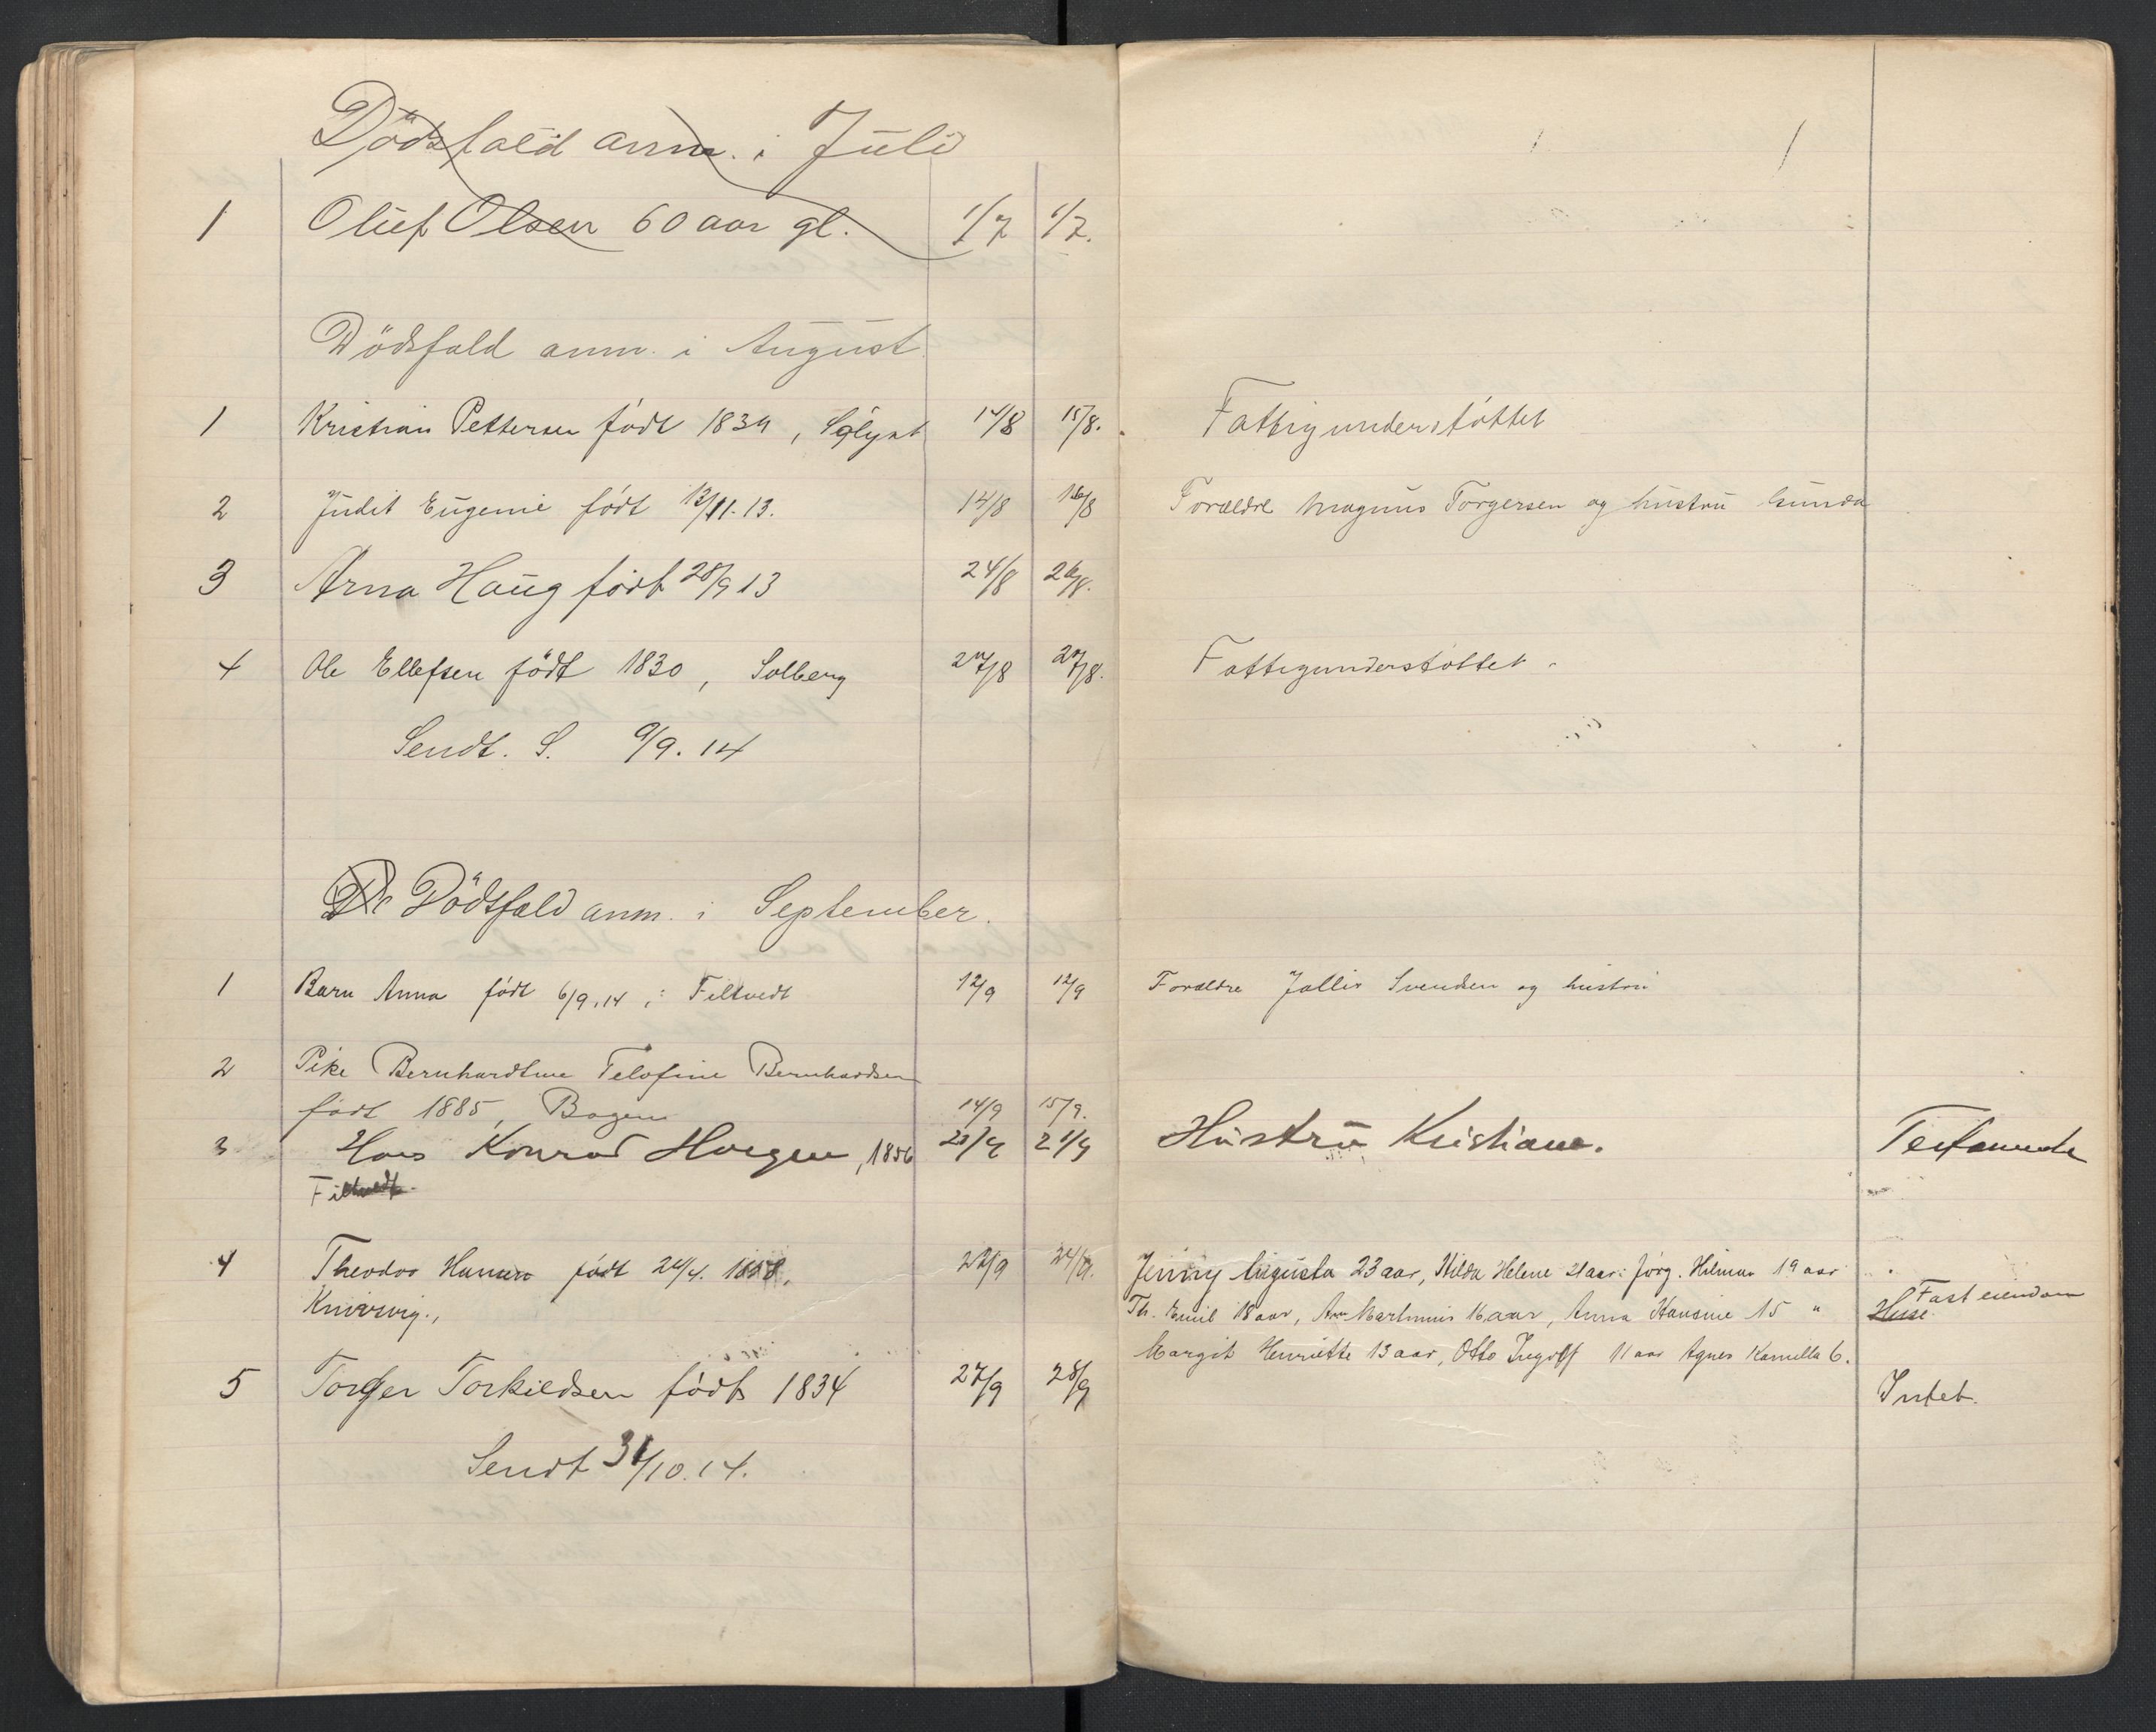 Dödsfald anm. i Juli
1 Oluf Olsen 60 aar gl. 1/7 6/7.
Dödsfald anm. i August
1 Kristian Pettersen født 1839, 14/8 15/8. Fattigunderstøttet
2 Judit Eugenie født 12/11.13. 14/8 16/8 Forældre Magnus Torgersen og hustru Gunda
3 Arna Haug født 28/9 13 24/8 26/8.
4 Ole Ellefsen född 1830, Solberg 27/8 27/8. Fattigunderstøttet.
Sendt. S. 9/9. 14
Dödsfald anm. i September.
1 Barn Anna født 6/9.14, Filtvedt 12/9 12/9 Forældre Svendsen og hustru
2 Pike Bernhardine Telofine Bernhardsen
født 1885, Bogen 14/9 15/9.
3 Hans Konrad Horgen, 1856 20/9 21/9 Hustru Kristiane. Testamente
Filtvedt.
4 Theodor Hansen født 24/4. 1858. 22/9 24/9. Jenny Augusta 23 aar, Hilda Helene 21 aar, Jørg. Hilmar 19 aar
Knivsvig., Th. Emil 18 aar, Martinius 16 aar, Anna Hansine 15 " Huse. Fast eiendom
Margit Henriette 13 aar, Otto Ingolf 11 aar Agnes Kamilla 6.
5 Torger Torkildsen født 1834 27/9 28/9 Intet.
Sendt 31/10.14.